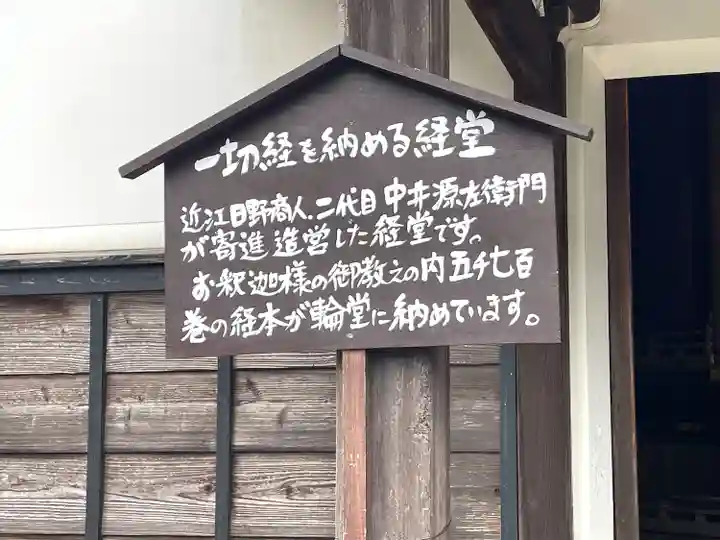 一切経を納める経堂
近江日野商人.二代目中井源左衛門
が寄進造営した経堂です。
お釈迦様の御教えの内五千七百
巻の経本が輪堂に納めています。